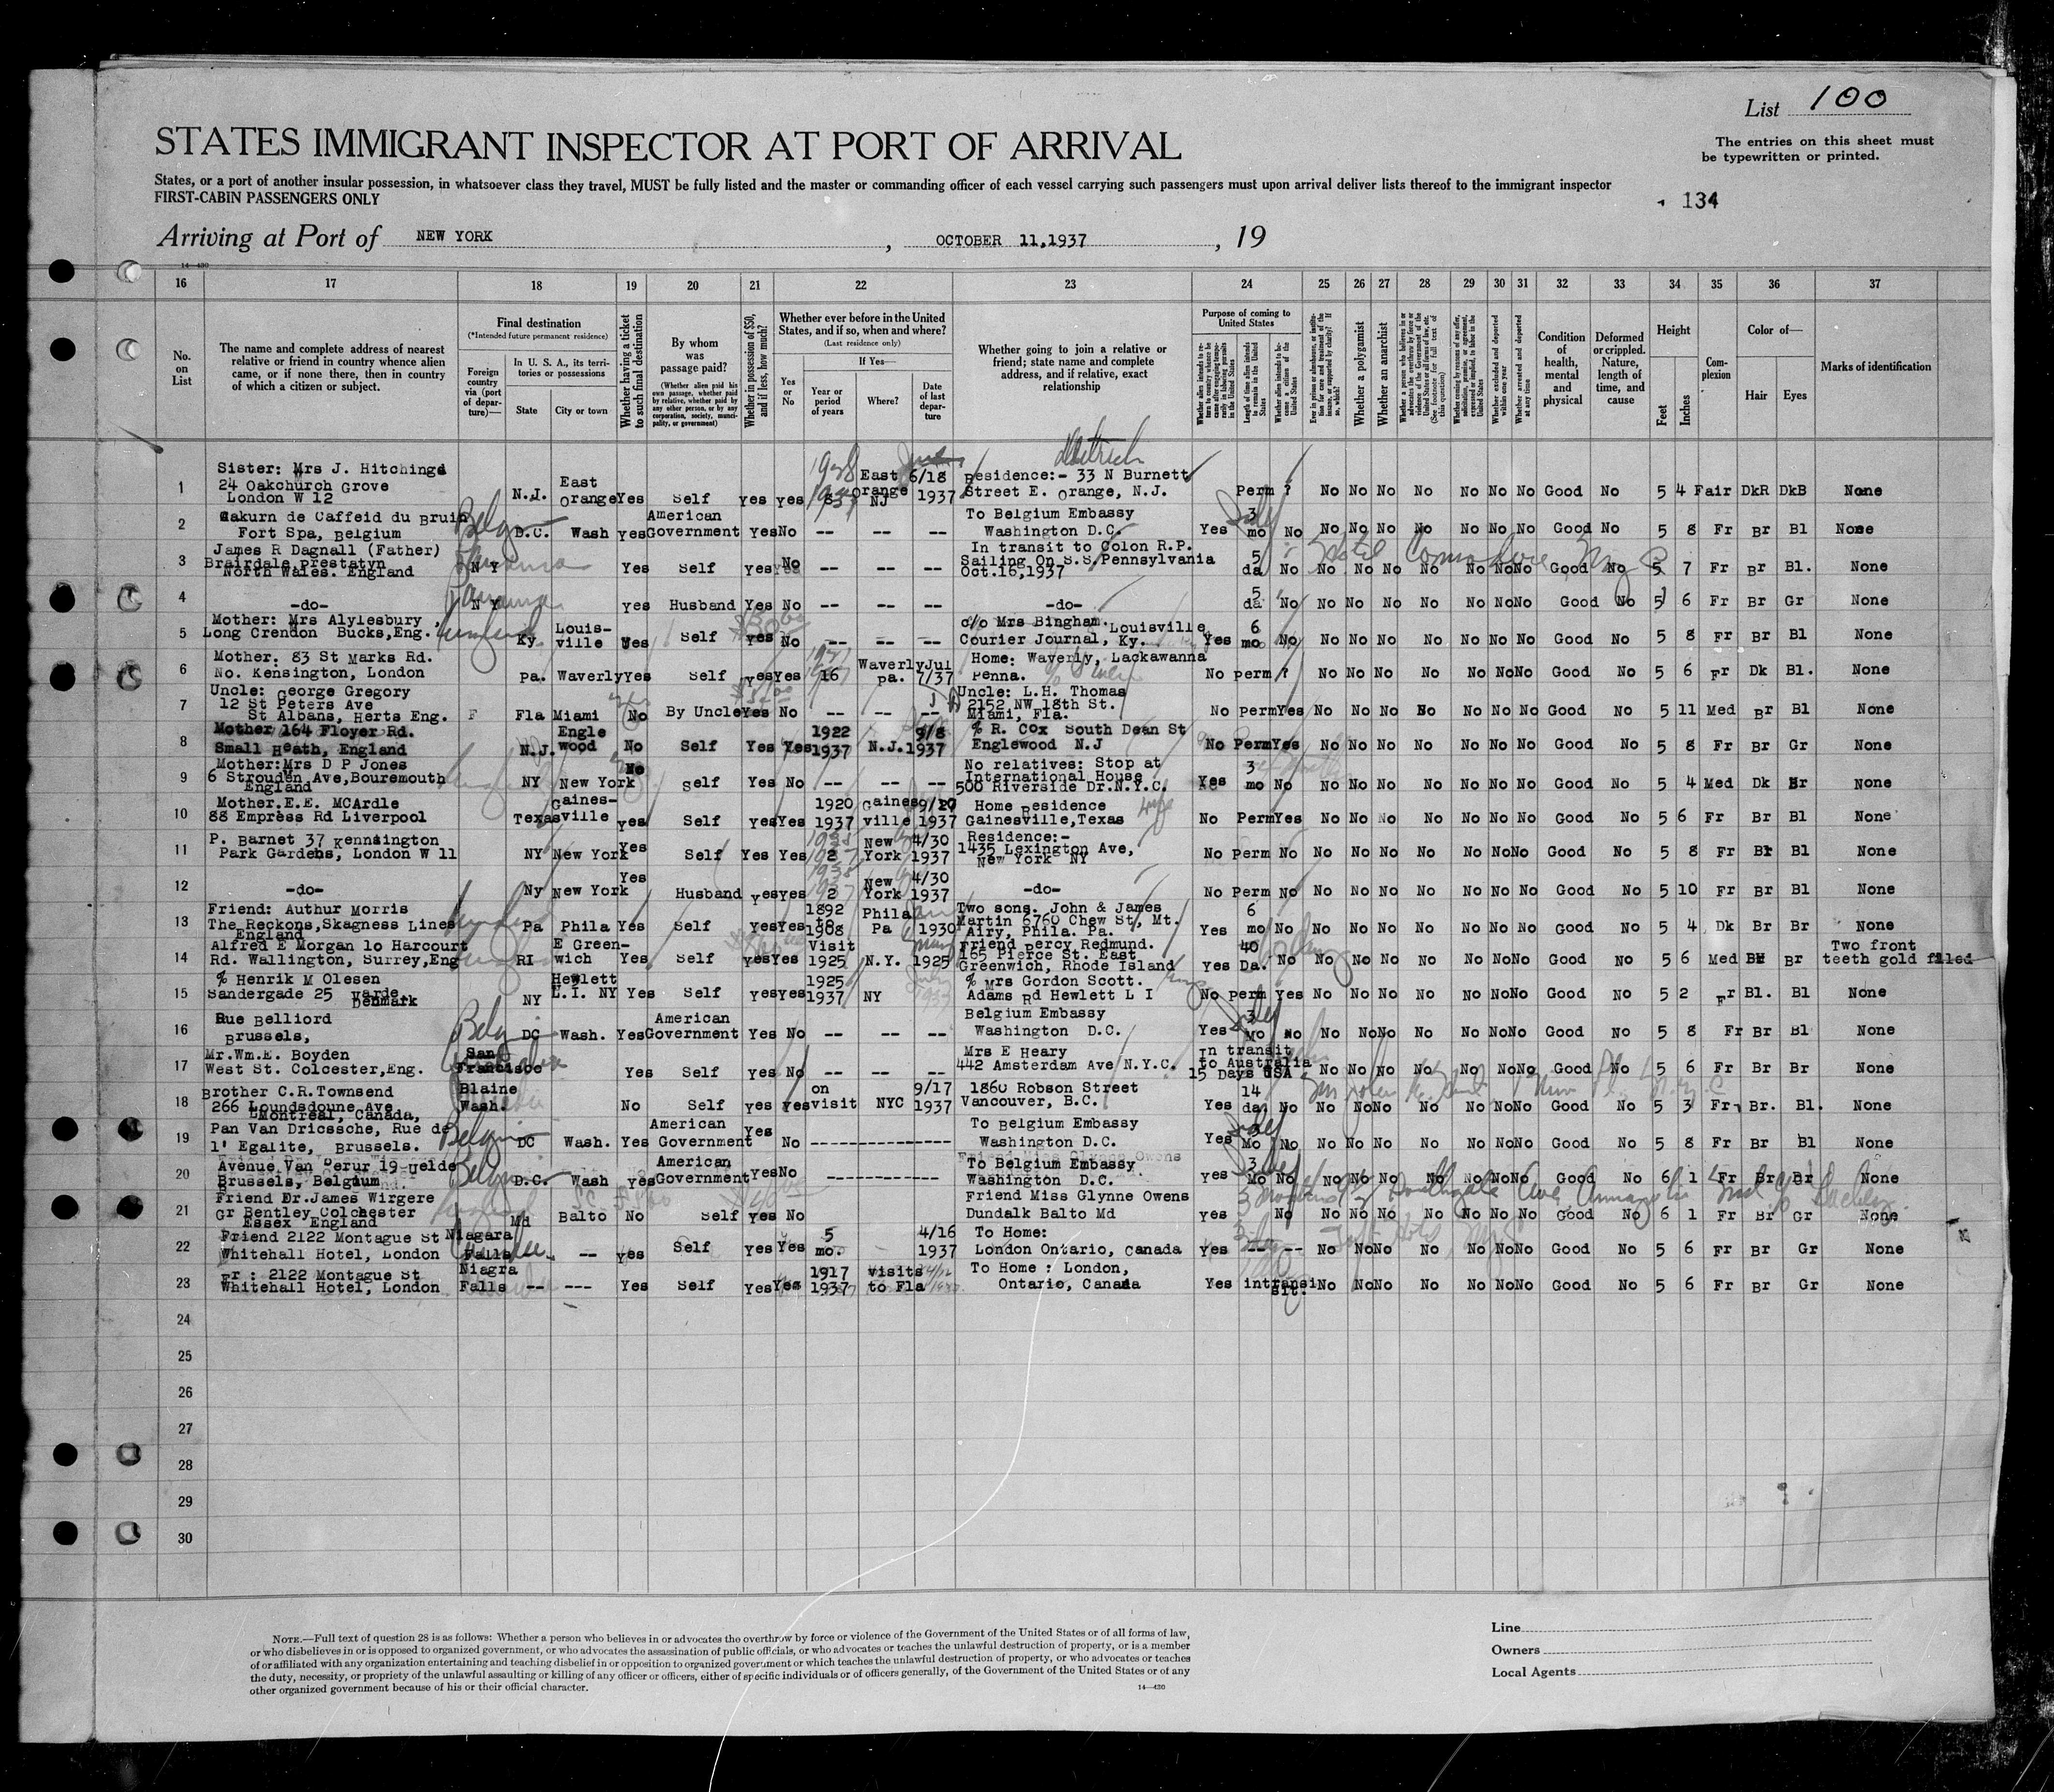 List 100
The entries on this sheet must
be typewritten or printed.
STATES IMMIGRANT INSPECTOR AT PORT OF ARRIVAL
States, or a port of another insular possession, in whatsoever class they travel, MUST be fully listed and the master or commanding officer of each vessel carrying such passengers must upon arrival deliver lists thereof to the immigrant inspector
FIRST-CABIN PASSENGERS ONLY
134
Arriving at Port of NEW YORK, OCTOBER 11,1937, 19
14—430
16 17 18 19 20 21 22 23 24 25 26 27 28 29 30 31 32 33 34 35 36 37
No. on List
The name and complete address of nearest relative or friend in country whence alien came, or if none there, then in country of which a citizen or subject.
Final destination
(*Intended future permanent residence)
Foreign country via (port of departure)—
In U. S. A., its territories or possessions
State
City or town
Whether having a ticket to such final destination
By whom was passage paid?
(Whether alien paid his own passage, whether paid by relative, whether paid by any other person, or by any corporation, society, municipality, or government)
Whether in possession of $50, and if less, how much?
Whether ever before in the United States, and if so, when and where?
(Last residence only)
Yes or No
If Yes—
Year or period of years
Where?
Date of last departure
Whether going to join a relative or friend; state name and complete address, and if relative, exact relationship
Purpose of coming to United States
Length of time alien intends to remain in the United States
Whether alien intends to become a citizen of the United States
Whether a polygamist
Whether an anarchist
Whether excluded and deported within one year
Whether arrested and deported at any time
Condition of health, mental and physical
Deformed or crippled. Nature, length of time, and cause
Height
Feet
Inches
Complexion
Color of—
Hair
Eyes
Marks of identification
Sister: Mrs J. Hitchings
24 Oakchurch Grove
London W 12
1 N.J. East Orange Yes Self Yes Yes East Orange NJ 6/18 1937 Residence:- 33 N Burnett Street E. Orange, N.J. Perm ? No No No No No No No Good No 5 4 Fair DkR DkB None
2 Fort Spa, Belgium D.C. Wash yes American Government Yes No -- -- -- To Belgium Embassy Washington D.C. Yes 3 mo No No No No No No No No Good No 5 8 Fr Br Bl None
James R Dagnall (Father)
3 Brairdale Prestatyn North Wales. England N Y Yes Self Yes No -- -- -- In transit to Colon R.P. Sailing On S.S. Pennsylvania Oct.16,1937 5 da No No No No No No No No Good No 5 7 Fr Br Bl. None
Hotel Commodore, N.Y.C
4 -do- N Y yes Husband Yes No -- -- -- -do- 5 da No No No No No No No No Good No 5 6 Fr Br Gr None
Mother: Mrs Alylesbury
5 Long Crendon Bucks,Eng. Ky. Louisville Yes Self yes No -- -- -- c/o Mrs Bingham. Louisville Courier Journal, Ky. Yes 6 mo No No No No No No No No Good No 5 8 Fr Br Bl None
Mother. 83 St Marks Rd.
6 No. Kensington, London Pa. Waverly Yes Self yes Yes 16 Waverly pa. Jul 7/37 Home: Waverly, Lackawanna Penna. No perm ? No No No No No No No Good No 5 6 Fr Dk Bl. None
Uncle: George Gregory
7 12 St Peters Ave St Albans, Herts Eng. Fla Miami No By Uncle Yes No -- -- -- Uncle: L.H. Thomas 2152 NW 18th St. Miami, Fla. No perm Yes No No No No No No No Good No 5 11 Med Br Bl None
Mother 164 Floyer Rd.
8 Small Heath, England N.J. Englewood No Self Yes Yes 1922 1937 N.J. 9/8 1937 % R. Cox South Dean St Englewood N.J No Perm Yes No No No No No No No Good No 5 8 Fr Br Gr None
Mother: Mrs D P Jones
9 6 Strouden Ave,Bouremouth England NY New York No Self Yes No -- -- -- No relatives: Stop at International House 500 Riverside Dr.N.Y.C. Yes 3 mo No No No No No No No No Good No 5 4 Med Dk Br None
Mother.E.E. MCArdle
10 88 Empress Rd Liverpool Texas Gainesville yes Self yes Yes 1920 1937 Gainesville 9/20 1937 Home Residence Gainesville,Texas No Perm Yes No No No No No No No Good No 5 6 Fr Br Bl None
P. Barnet 37 Kennsington
11 Park Gardens, London W 11 NY New York Yes Self Yes Yes 2 New York 4/30 1937 Residence:- 1435 Lexington Ave, New York NY No Perm No No No No No No No No Good No 5 8 Fr Br Bl None
12 -do- Ny New York Yes Husband yes yes 2 New York 4/30 1937 -do- No Perm No No No No No No No No Good No 5 10 Fr Br Bl None
Friend: Authur Morris
13 The Reckons,Skagness Lines England Pa Phila Yes Self yes Yes 1892 to 1908 Phila Pa 1930 Two sons. John & James Martin 6760 Chew St, Mt. Airy, Phila. Pa. Yes 6 mo No No No No No No No No Good No 5 4 Dk Br Br None
Alfred E Morgan 10 Harcourt
14 Rd. Wallington, Surrey,Eng RI E Greenwich Yes Self yes Yes Visit 1925 N.Y. 1925 Friend Percy Redmund. 165 Pierce St. East Greenwich, Rhode Island Yes 40 Da. No No No No No No No No Good No 5 6 Med Br Br Two front teeth gold filled
% Henrik M Olesen
15 Sandergade 25 Varde Denmark NY Hewlett L.I. NY Yes Self yes Yes 1925 1937 NY % Mrs Gordon Scott. Adams Rd Hewlett L I No perm Yes No No No No No No No Good No 5 2 Fr Bl. Bl None
Rue Belliord
16 Brussels, DC Wash. Yes American Government Yes No -- -- -- Belgium Embassy Washington D.C. Yes 3 Mo No No No No No No No No Good No 5 8 Fr Br Bl None
Mr.Wm.E. Boyden
17 West St. Colcester,Eng. San Francisco Yes Self Yes No -- -- -- Mrs E Heary 442 Amsterdam Ave N.Y.C. In transit to Australia 15 Days USA No No No No No No No Good No 5 6 Fr Br Br None
Brother C.R.Townsend
18 266 Loundsdoune Ave Montreal, Canada, Blaine Wash. No Self yes Yes on visit NYC 9/17 1937 1860 Robson Street Vancouver, B.C. Yes 14 da. No No No No No No No No Good No 5 3 Fr Br. Bl. None
Pan Van Dricssche, Rue de
19 l' Egalite, Brussels. DC Wash. Yes American Government Yes No --------------- To Belgium Embassy Washington D.C. Yes 3 Mo No No No No No No No No Good No 5 8 Fr Br Bl None
20 Brussels, Belgium D.C. Wash yes American Government Yes No ------------ To Belgium Embassy Washington D.C. Yes 3 Mo No No No No No No No No Good No 6 1 Fr Br Br None
Friend Dr.James Wirgere
21 Gr Bentley Colchester Essex England Md Balto No Self yes No Friend Miss Glynne Owens Dundalk Balto Md Yes No No No No No No No No Good No 6 1 Fr Br Gr None
Friend 2122 Montague St
22 Whitehall Hotel, London Niagara Falls -- yes Self Yes Yes 5 mo. 4/16 1937 To Home: London Ontario, Canada Yes -- -- No No No No No No No Good No 5 6 Fr Br Gr None
Fr : 2122 Montague St
23 Whitehall Hotel, London Niagra Falls -- --- Yes Self Yes Yes 1917 1937 visits to Fla To Home : London, Ontario, Canada Yes intransit. No No No No No No No Good No 5 6 Fr Br Gr None
24
25
26
27
28
29
30
NOTE.—Full text of question 28 is as follows: Whether a person who believes in or advocates the overthrow by force or violence of the Government of the United States or of all forms of law,
or who disbelieves in or is opposed to organized government, or who advocates the assassination of public officials, or who advocates or teaches the unlawful destruction of property, or is a member
of or affiliated with any organization entertaining and teaching disbelief in or opposition to organized government or which teaches the unlawful destruction of property, or who advocates or teaches
the duty, necessity, or propriety of the unlawful assaulting or killing of any officer or officers, either of specific individuals or of officers generally, of the Government of the United States or of any
other organized government because of his or their official character.
14—430
Line
Owners
Local Agents